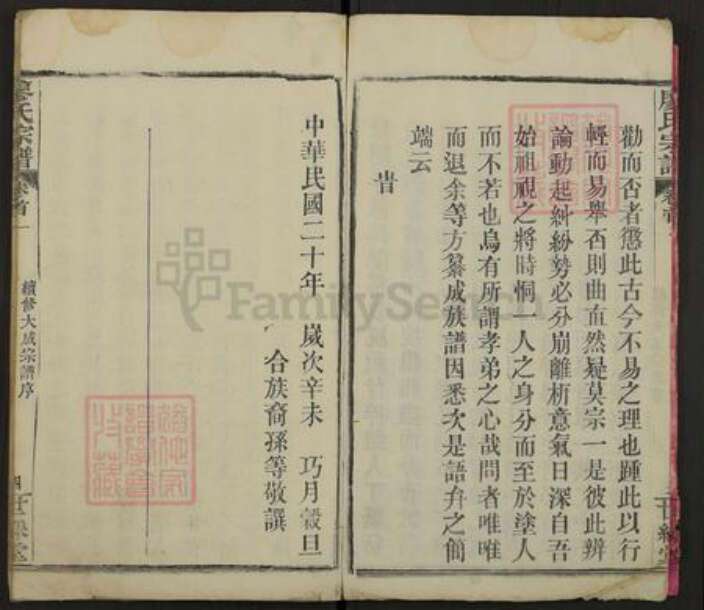 廖氏宗譜
卷首
勸而否者懲此古今不易之理也踵此以行
輕而易舉否則曲直然疑莫宗一是彼此辨
論動起糾紛勢必分崩離析意氣日深自吾
始祖視之將時恫一人之身分而至於塗人
而不若也烏有所謂孝弟之心哉問者唯唯
而退余等方纂成族譜因悉次是語弁之簡
端云
旹
中華民國二十年 歲次辛未 巧月穀旦
合族裔孫等敬譔
廖氏宗譜
卷首一
續修大成宗譜序
四
FamilySearch